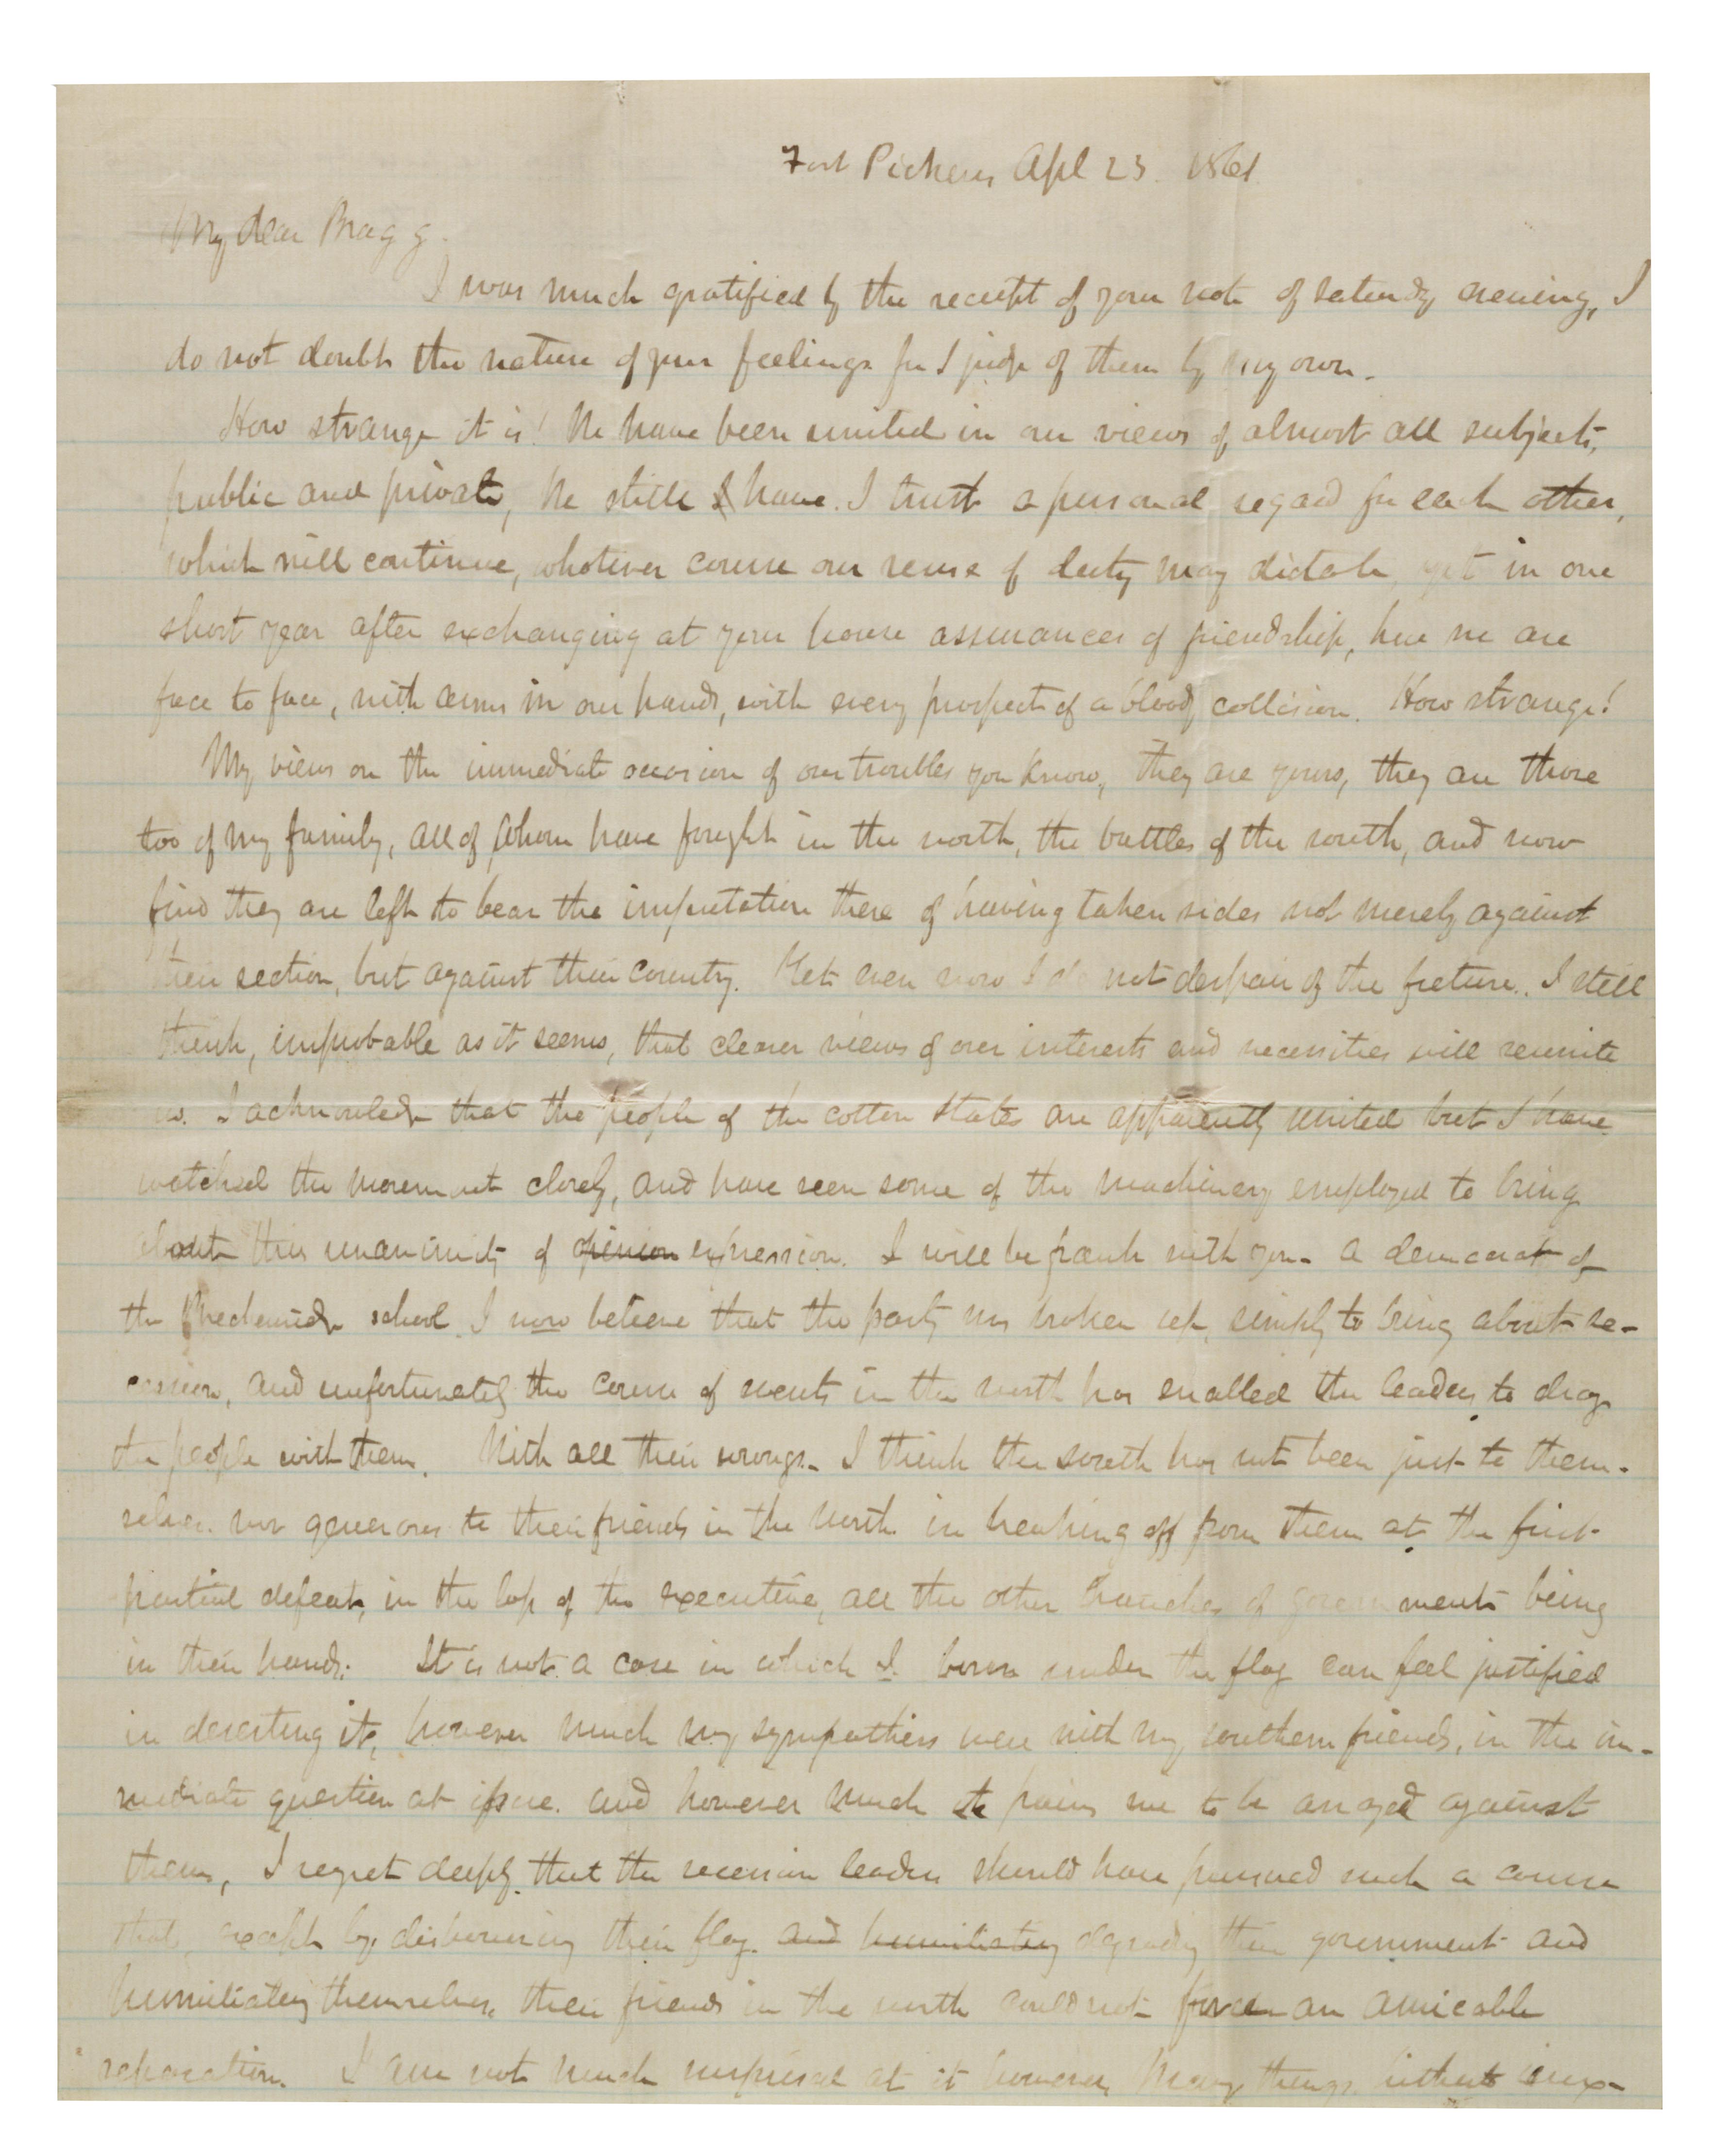 Fort Pickens Apl 23. 1861
My dear Bragg.
I was much gratified by the receipt of your note of Saturday evening, I
do not doubt the nature of your feelings for I judge of them by my own.
How strange it is! We have been united in our views of almost all subjects,
public and private, We still have. I trust a personal regard for each other,
which will continue, whatever course our sense of duty may dictate yet in one
short year after exchanging at your house assurances of friendship, here we are
face to face, with arms in our hands, with every prospect of a bloody collision. How strange!
My views on the immediate occasion of our troubles you know, They are yours, they are those
too of my family, all of whom have fought in the north, the battles of the south, and now
find they are left to bear the imputation there of having taken sides not merely against
their section, but against their country. Yet even now I do not despair of the future. I still
think, improbable as it seems, that clearer views of our interests and necessities will reunite
us. I acknowledge that the people of the cotton States are apparently united but I have
watched the movement closely, and have seen some of the machinery employed to bring
about this unanimity of opinion expression. I will be frank with you. a democrat of
the Breckenridge school I now believe that the party was broken up, simply to bring about se-
cession, and unfortunately the course of events in the north has enabled the leaders to drag
the people with them. With all their wrongs. I think the south has not been just to them-
selves. nor generous to their friends in the North. in breaking off from them at the first
partial defeat, in the loss of the executive, all the other branches of governments being
in their hands. It is not a case in which I born under the flag can feel justified
in deserting it, however much my sympathies were with my southern friends, in the im-
mediate question at issue. and however much it pains me to be arrayed against
them, I regret deeply that the secession leaders should have pursued such a course
that, except by dishonoring their flag. and humiliating degrading their government and
humiliating themselves, their friends in the north could not force an amicable
separation. I am not much surprised at it however, Many things hitherto inex-